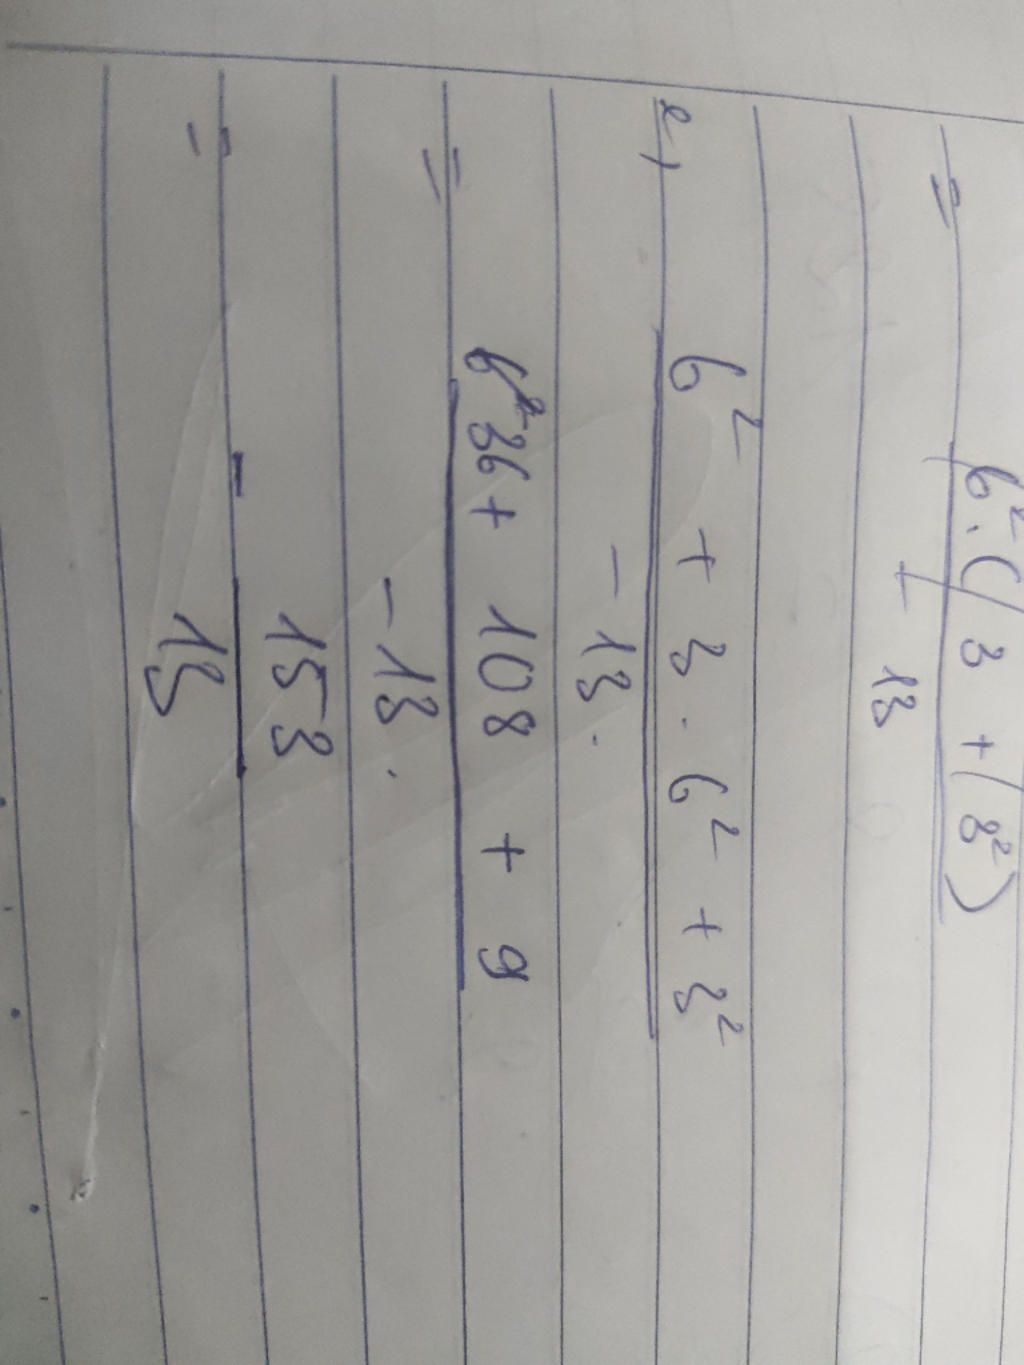 = 6² · ( 3 + ( 3² )
- 13
e, 6² + 3 . 6² + 3²
- 13 .
= 36 + 108 + 9
- 13 .
= - 153
13